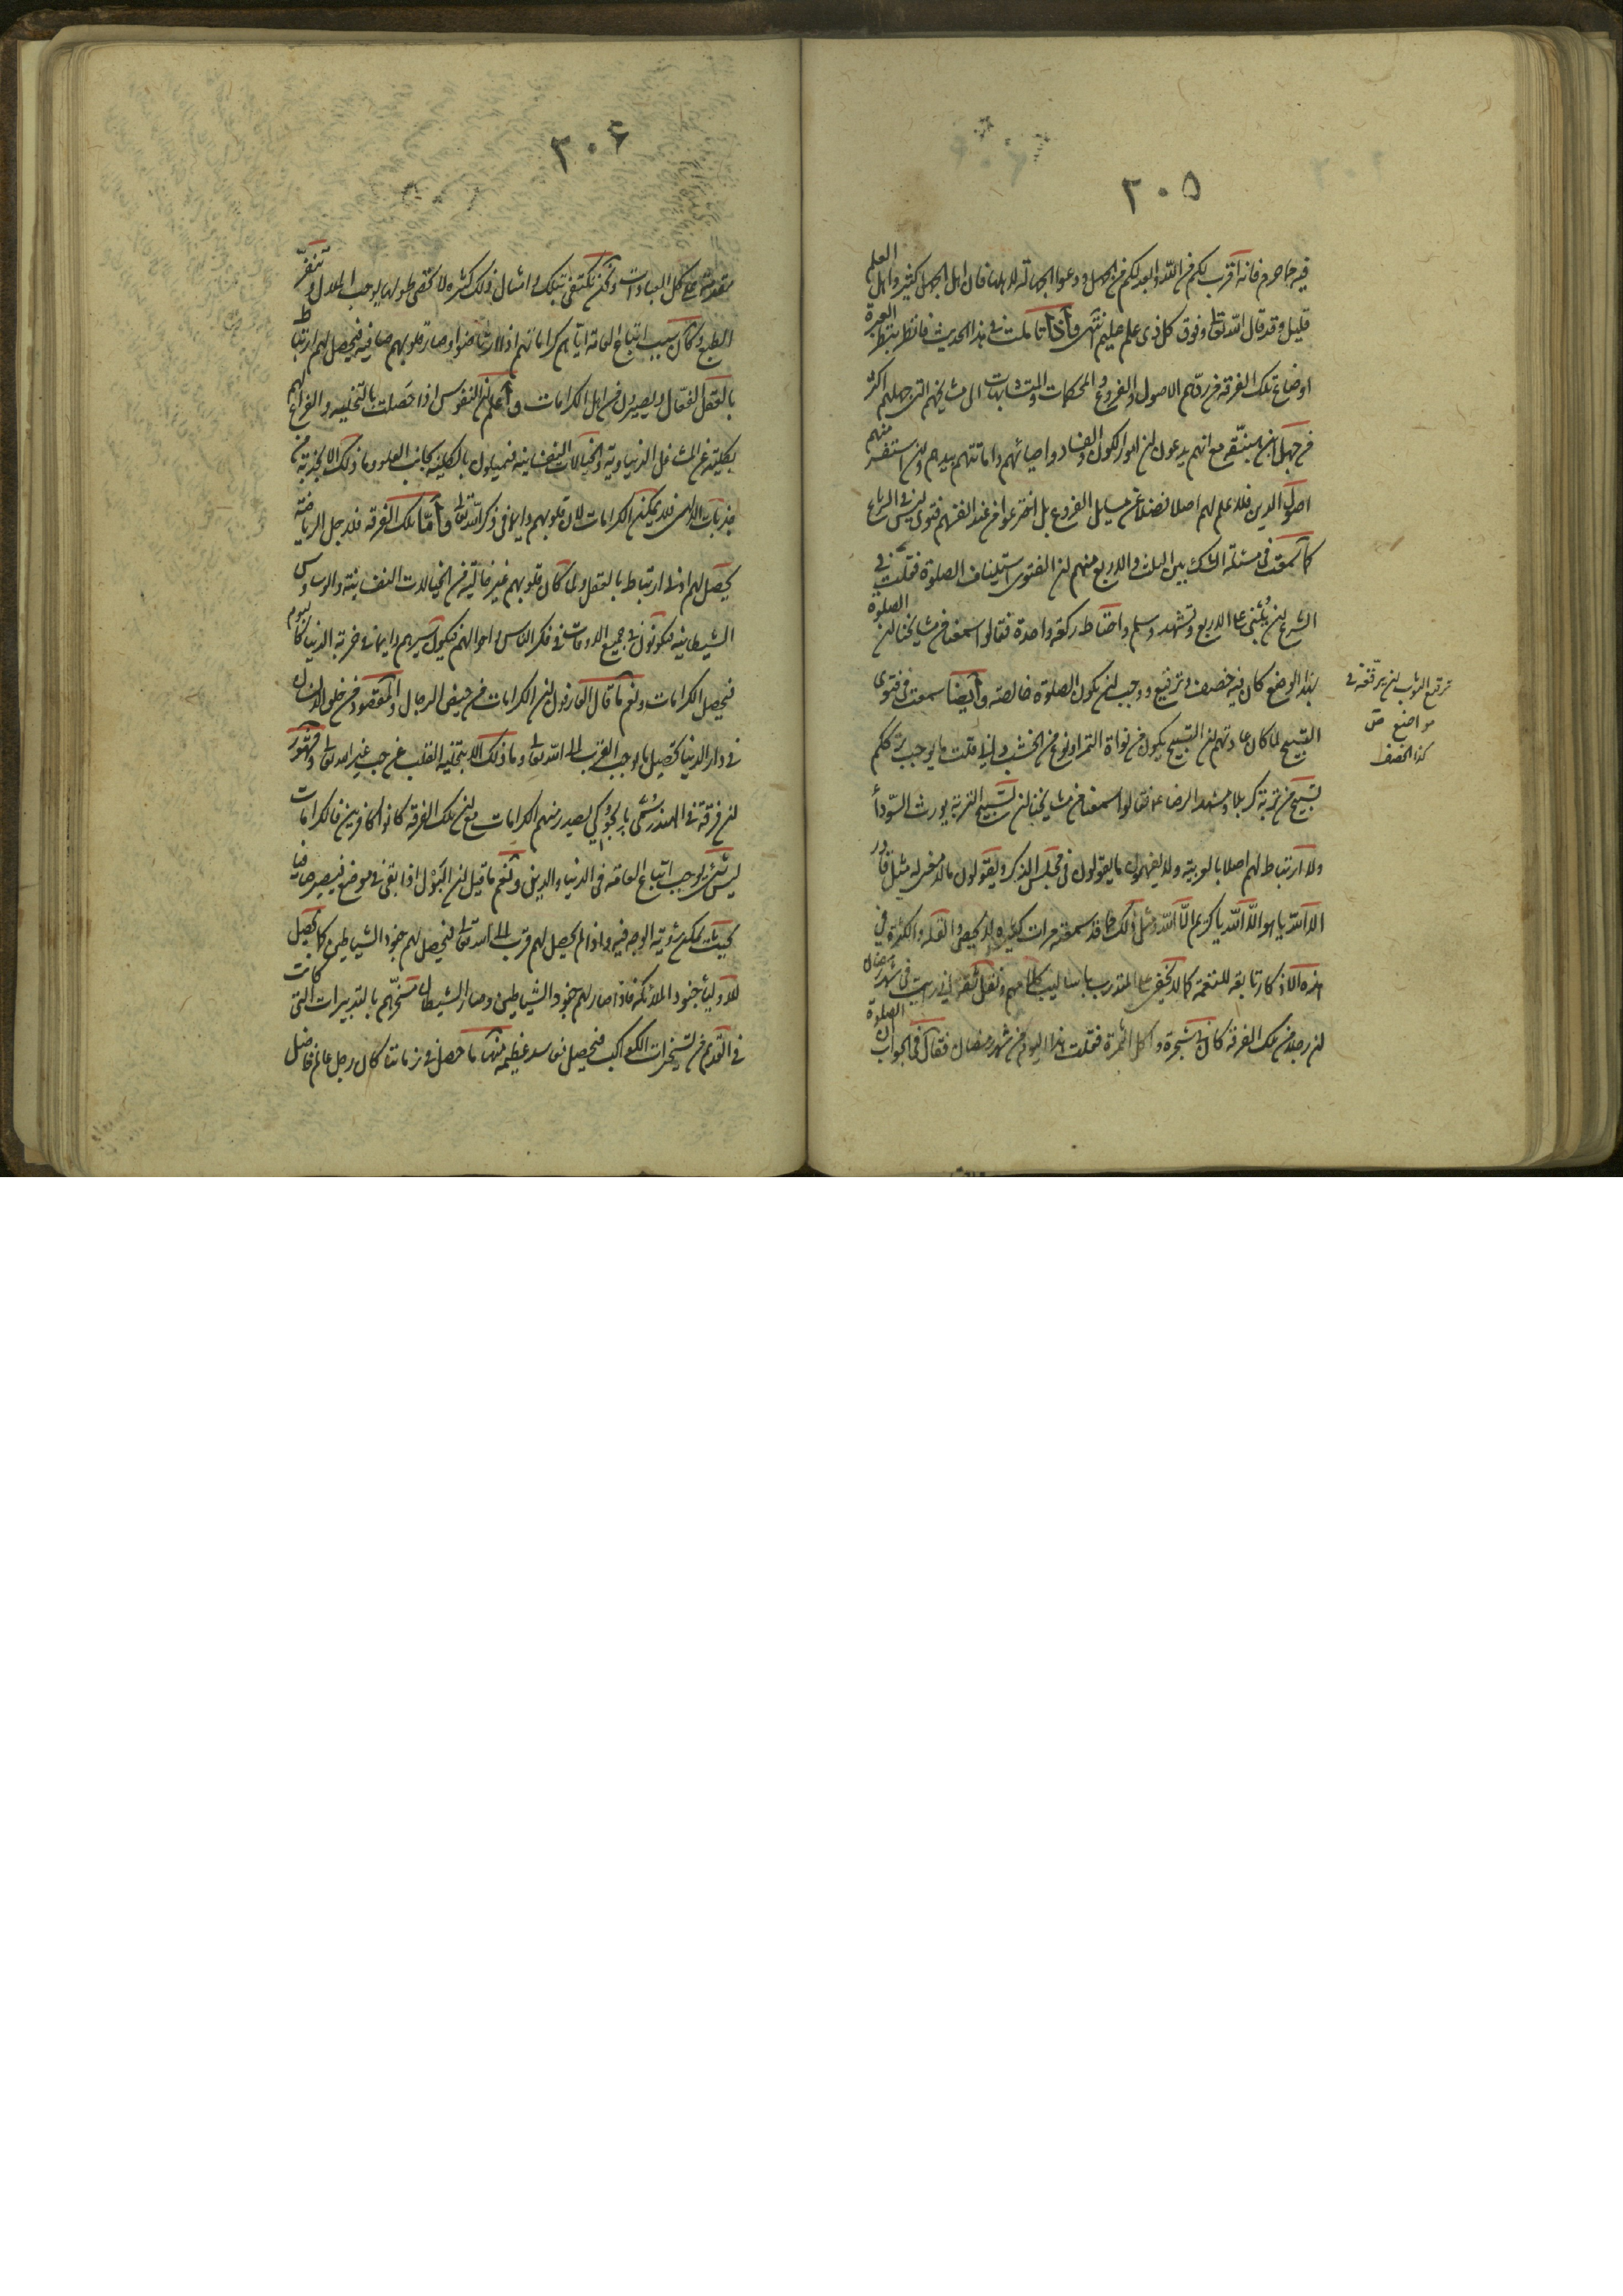 ٢٠٥
فيه جاحدهم فانه اقرب لكم من الله وابعد لكم من الجهل ودعوا الجهالة لاهلها فان اهل الجهل كثير واهل العلم
قليل وقد قال الله تعالى وفوق كل ذى علم عليم انتهى فاذا تاملت فى هذا الحديث فانظر بنظر العبرة
اوضاع تلك الفرقة من ردهم الاصول والفروع والمحكمات والمتشابهات الى مشايخهم التى جهلهم اكثر
من جهل ابن هبنقة مع انهم يدعون ان امور الكون والفساد واحيائهم واماتتهم بيدهم ولئن استفسر منهم
اصول الدين فلا علم لهم اصلا فضلا عن مسايل الفروع بل اخترعوا من عند انفسهم فتوى ليس فى الشرع
كما سمعت فى مسئلة الشك بين الثلث والاربع منهم ان الفتوى استيناف الصلوة فقلت فى
الشرع ان يبنى على الاربع وتشهد وسلم واحتاط ركعة واحدة فقالوا سمعنا من مشايخنا ان الصلوة
بهذا الوضع كان فيه خصف وترقيع ووجب ان يكون الصلوة خالصة وايضا سمعت فى فتوى
التسبيح لما كان عادتهم ان التسبيح يكون من نواة التمر او نوع من الخشب قلت ما يوجب ترككم
تسبيح من تربة كربلا ومشهد الرضا ع فقالوا سمعنا من مشايخنا ان تسبيح التربة يورث السوداء
ولا ارتباط لهم اصلا بالعربية ولا يفهمون ما يقولون فى مجلس الذكر ويقولون ما لا معنى له مثل قادر
الا الله يا هو الا الله يا كريم الا الله ومثل ذلك مما قد سمعته مرات كثيرة لا يحصى والقلة والكثرة فى
هذه الاذكار تابعة للنغمة كما لا يخفى على المتدرب باساليب كلامهم ونقل ثقة انى رايت فى شهر رمضان
ان رجلا من تلك الفرقة كان فى شجرة واكل الثمرة فقلت هذا اليوم من شهر رمضان فقال فى الجواب ان الصلوة
ترقيع الثوب ان يرقعه فى
مواضع ق
كذا الخصف
٢٠۶
مقدمة على كل العبادات ولكن نكتفى بتلك وامثال ذلك كثيرة لا تحصى طولها يوجب الملال وتنفر
الطبع وكان سبب اتباع العامة اياهم كراماتهم اذ لارتاضوا وصار قلوبهم صافية فيحصل لهم ارتباط
بالعقل الفعال ويصيرون من اهل الكرامات واعلم ان النفوس اذا حصلت بالتخلية والفراغ لهم
بكليته عن المشاغل الدنياوية والخيالات النفسانية فيميلون بالكلية بجانب العلو وما ذلك الا بجذبة من
جذبات الالهى فلا يمكن الكرامات لان قلوبهم دايما فى ذكر الله تعالى واما تلك الفرقة فلاجل الرياضة
يحصل لهم ادنى ارتباط بالعقل ولما كان قلوبهم غير خالية من الخيالات النفسانية والوساوس
الشيطانية فيكونون فى جميع الاوقات فى فكر الناس واحوالهم فيكون سيرهم دايما فى خربة الدنيا كالبوم
فيحصل الكرامات ونعم ما قال العارفون ان الكرامات من حيض الرجال والمقصود من خلق الانسان
فى دار الدنيا تحصيل ما يوجب القرب الى الله تعالى وما ذلك الا بتخلية القلب عن حب غير الله تعالى ومشهور
ان فرقة فى الهند تسمى بالجوكى يصدر منهم الكرامات مع ان تلك الفرقة كانوا كافرين فالكرامات
ليس شئ يوجب اتباع العامة فى الدنيا والدين ونعم ما قيل ان البول اذا بقى فى موضع فيصير صافيا
بحيث يمكن رؤية الوجه فيه واذا لم يحصل لهم قرب الى الله تعالى فيحصل لهم جنود الشياطين كما يحصل
للاولياء جنود الملائكة فاذا صار لهم جنود الشياطين وصار الشيطان مسخرهم بالتدبيرات التى كانت
فى القديم من تسخيرات الكواكب فيحصل مفاسد عظيمة منها ما حصل فى زماننا كان رجل عالم فاضل